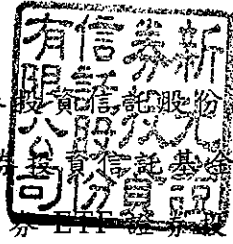 新光證
券投資
信託股份
有限公司
股資信託股份
券投資信託基金
券 ETF 證券投